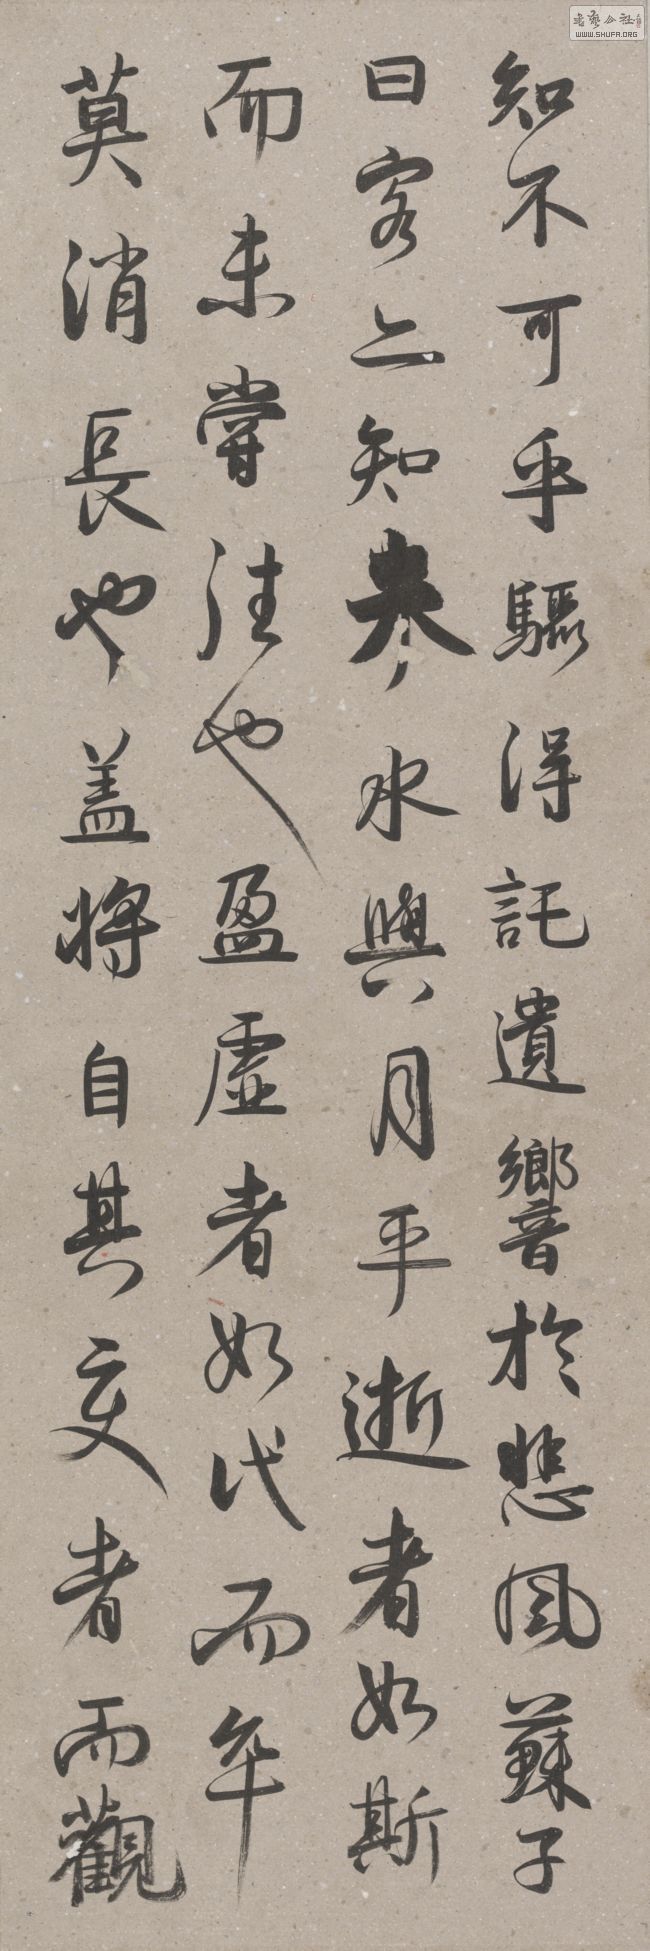 知不可乎驟得託遺響於悲風蘇子
曰客亦知夫水與月乎逝者如斯
而未嘗往也盈虛者如代而卒
莫消長也盖将自其变者而觀
書藝公社
WWW.SHUFA.ORG